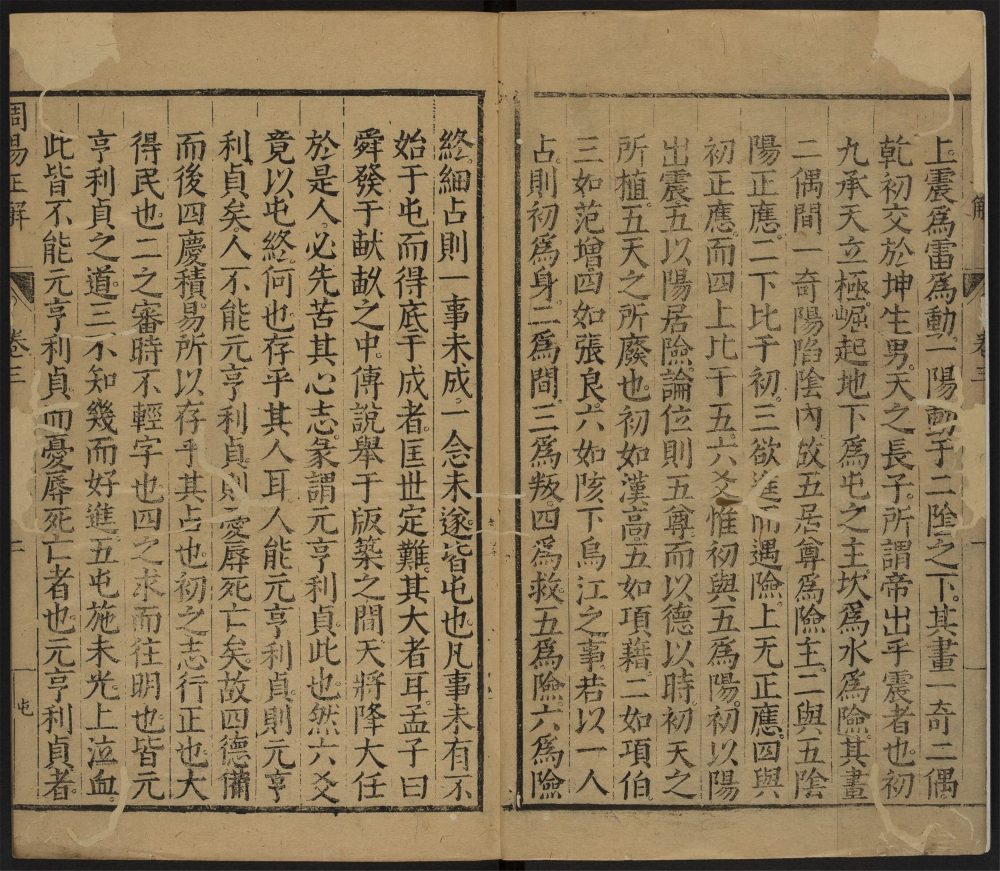 解 卷三 一
上。震爲雷爲動。一陽動于二陰之下。其畫一奇二偶
乾初交於坤生男。天之長子。所謂帝出乎震者也。初
九承天立極。崛起地下。爲屯之主。坎爲水爲險。其畫
二偶間一奇。陽陷陰內。故五居尊爲險主。二與五陰
陽正應。二下比于初。三欲進而遇險。上无正應。四與
初正應。而四上比于五。六爻惟初與五爲陽。初以陽
出震。五以陽居險。論位則五尊。而以德以時。初天之
所植。五天之所廢也。初如漢高。五如項藉。二如項伯
三如范增。四如張良。六如陔下烏江之事。若以一人
占。則初爲身。二爲間。三爲叛。四爲救。五爲險。六爲險
終。細占則一事未成。一念未遂。皆屯也。凡事未有不
始于屯。而得底于成者。匡世定難。其大者耳。孟子曰
舜發于猷畝之中。傳說舉于版築之間。天將降大任
於是人。必先苦其心志。彖謂元亨利貞。此也。然六爻
竟以屯終。何也。存乎其人耳。人能元亨利貞。則元亨
利貞矣。人不能元亨利貞。則憂辱死亡矣。故四德備
而後四慶積。易所以存乎其占也。初之志行正也。大
得民也。二之審時不輕字也。四之求而往明也。皆元
亨利貞之道。三不知幾而好進。五屯施未光。上泣血。
此皆不能元亨利貞。而憂辱死亡者也。元亨利貞者。
周易正解 卷三 二 屯